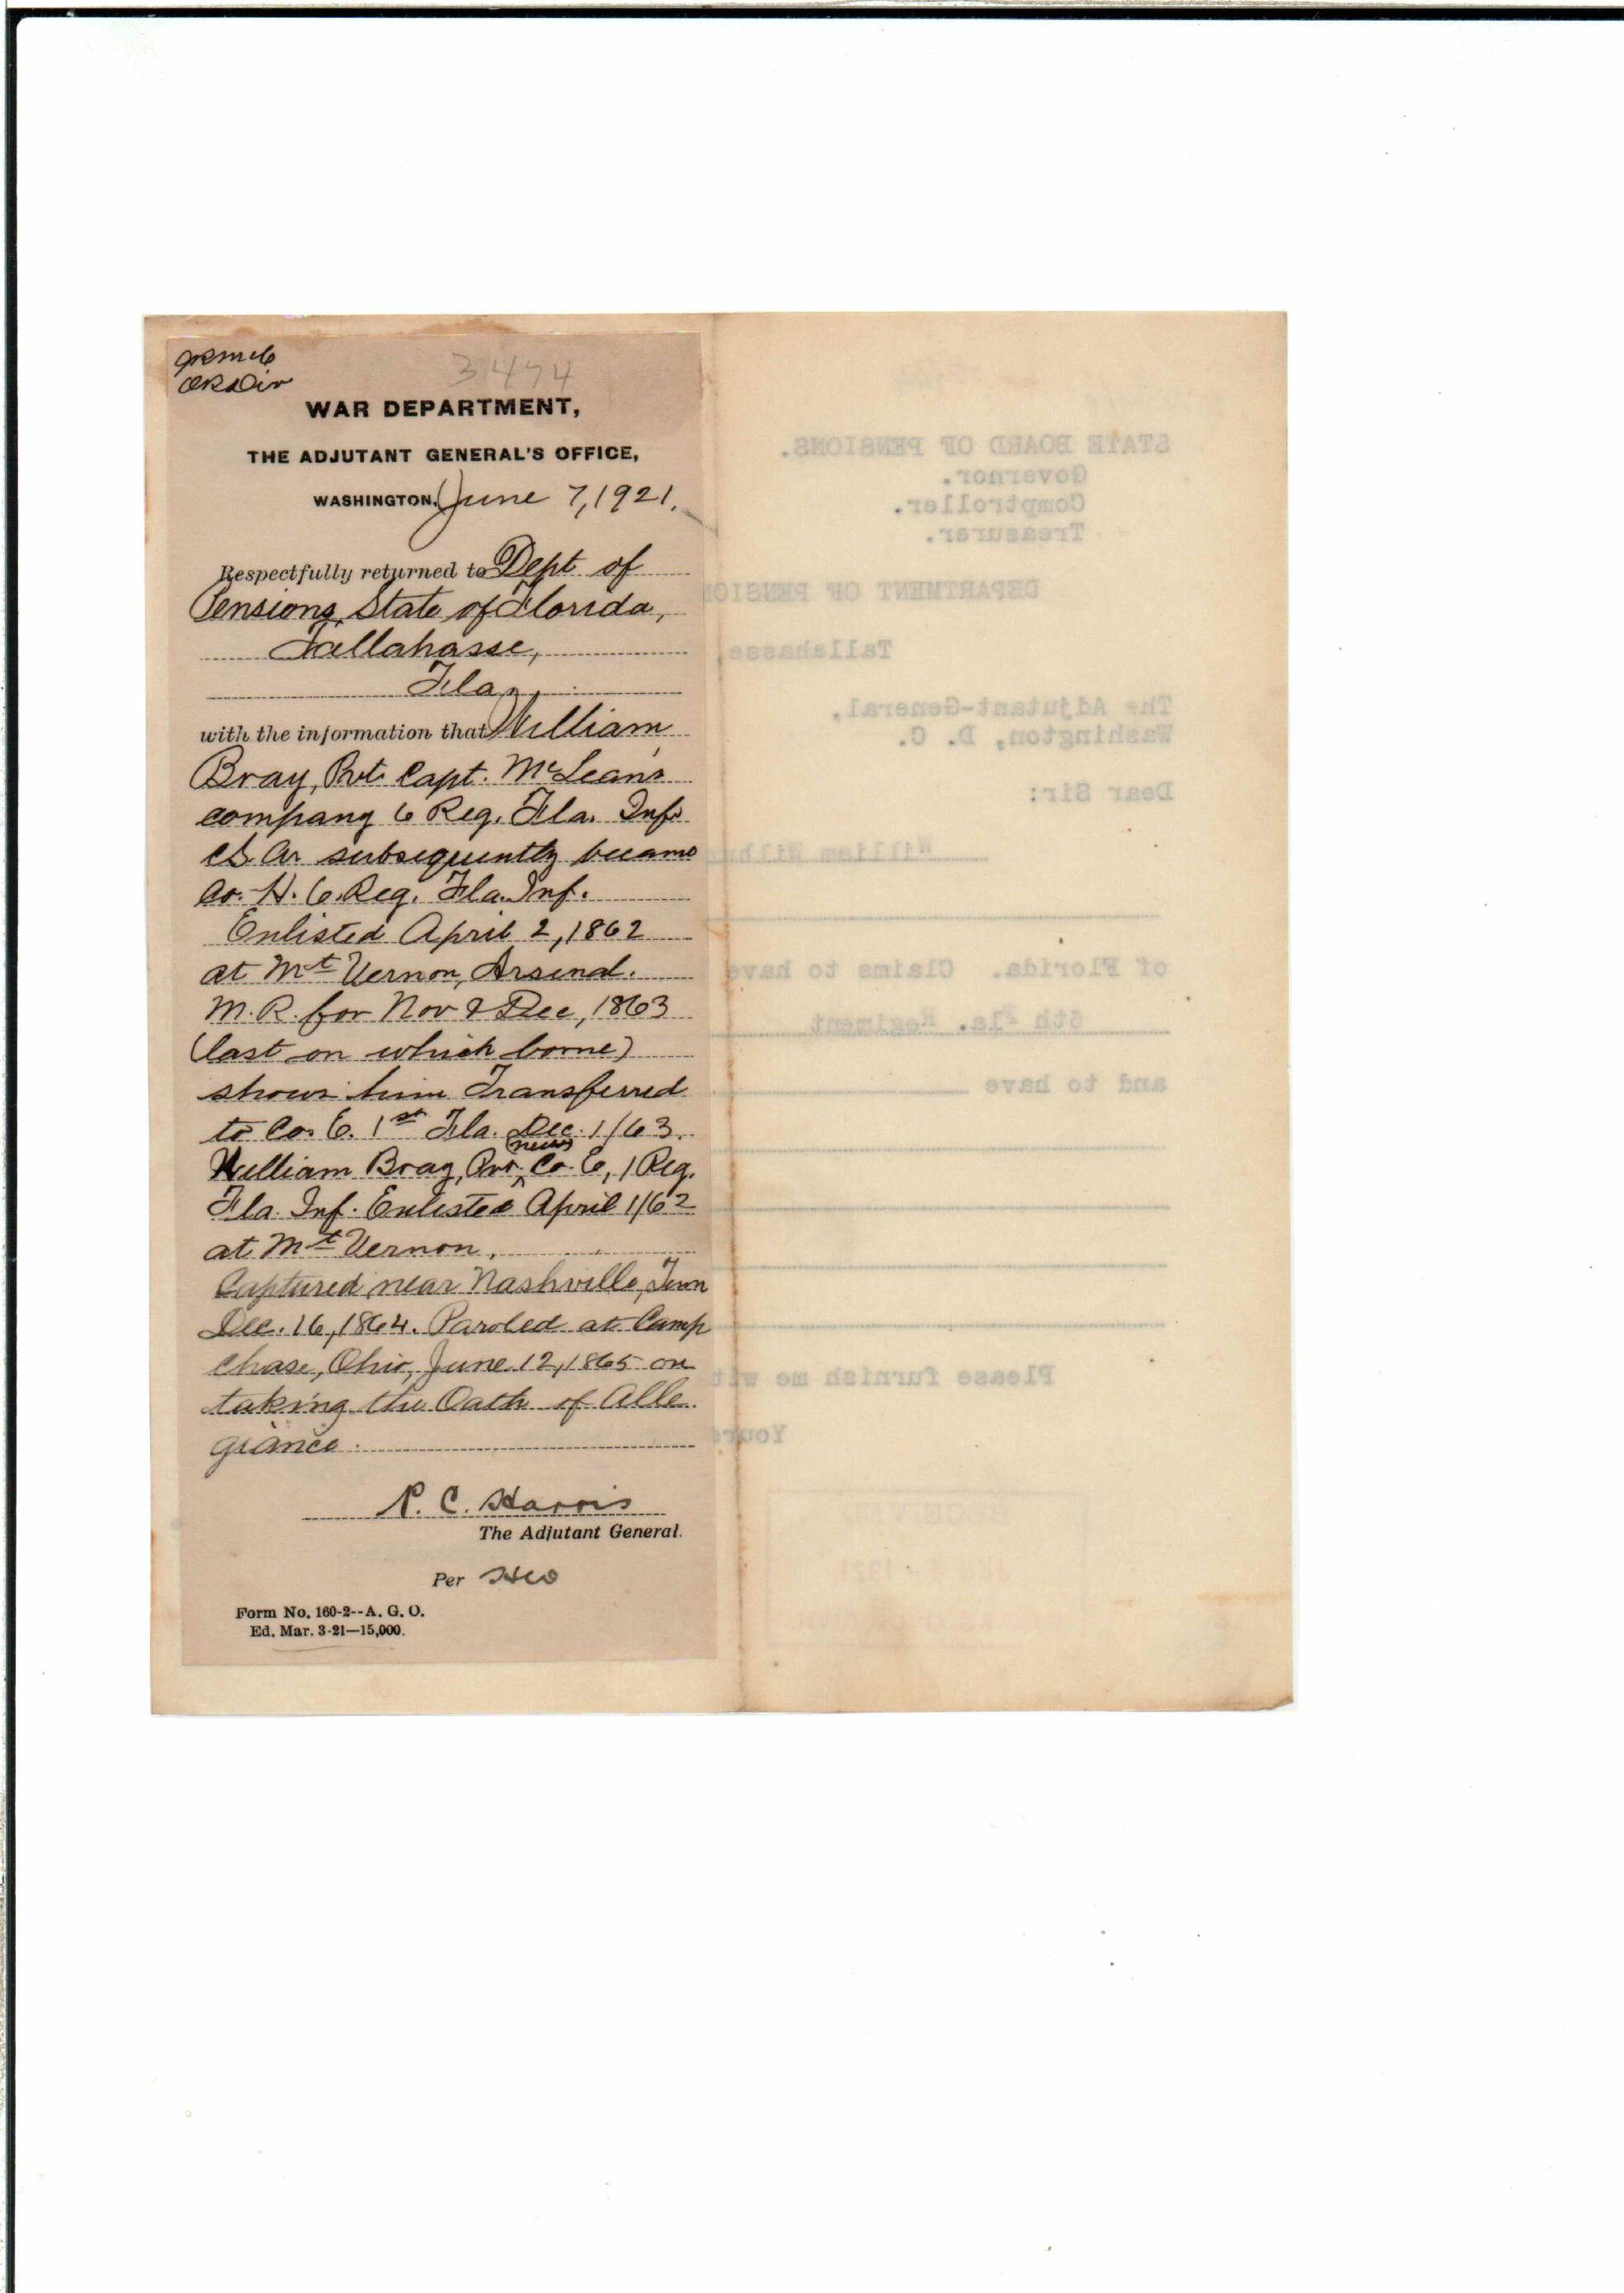 3474
WAR DEPARTMENT,
THE ADJUTANT GENERAL'S OFFICE,
WASHINGTON, June 7, 1921.
Respectfully returned to Dept of
Pensions, State of Florida,
Tallahasse,
Fla.,
with the information that William
Bray, Pvt. Capt. McLean's
company 6 Reg. Fla. Inf.
C.S.A. subsequently became
Co. H. 6. Reg. Fla. Inf.
Enlisted April 2, 1862
at Mt Vernon, Arsenal.
M.R. for Nov & Dec, 1863
(last on which borne)
shows him Transferred
to Co. E. 1st Fla. Dec. 1/63.
(new)
William Bray, Pvt. Co. E, 1 Reg.
Fla. Inf. Enlisted April 1/62
at Mt Vernon.
Captured near Nashville, Tenn
Dec. 16, 1864. Paroled at Camp
Chase, Ohio, June 12, 1865 on
taking the Oath of Alle
giance.
P. C. Harris
The Adjutant General.
Per
Form No. 160-2--A. G. O.
Ed. Mar. 3-21—15,000.
STATE BOARD OF PENSIONS.
Governor.
Comptroller.
Treasurer.
DEPARTMENT OF PENSION
Tallahassee,
The Adjutant-General,
Washington, D. C.
Dear Sir:
William
of Florida. Claims to have
6th Fla. Regiment
and to have
Please furnish me wit
Yours